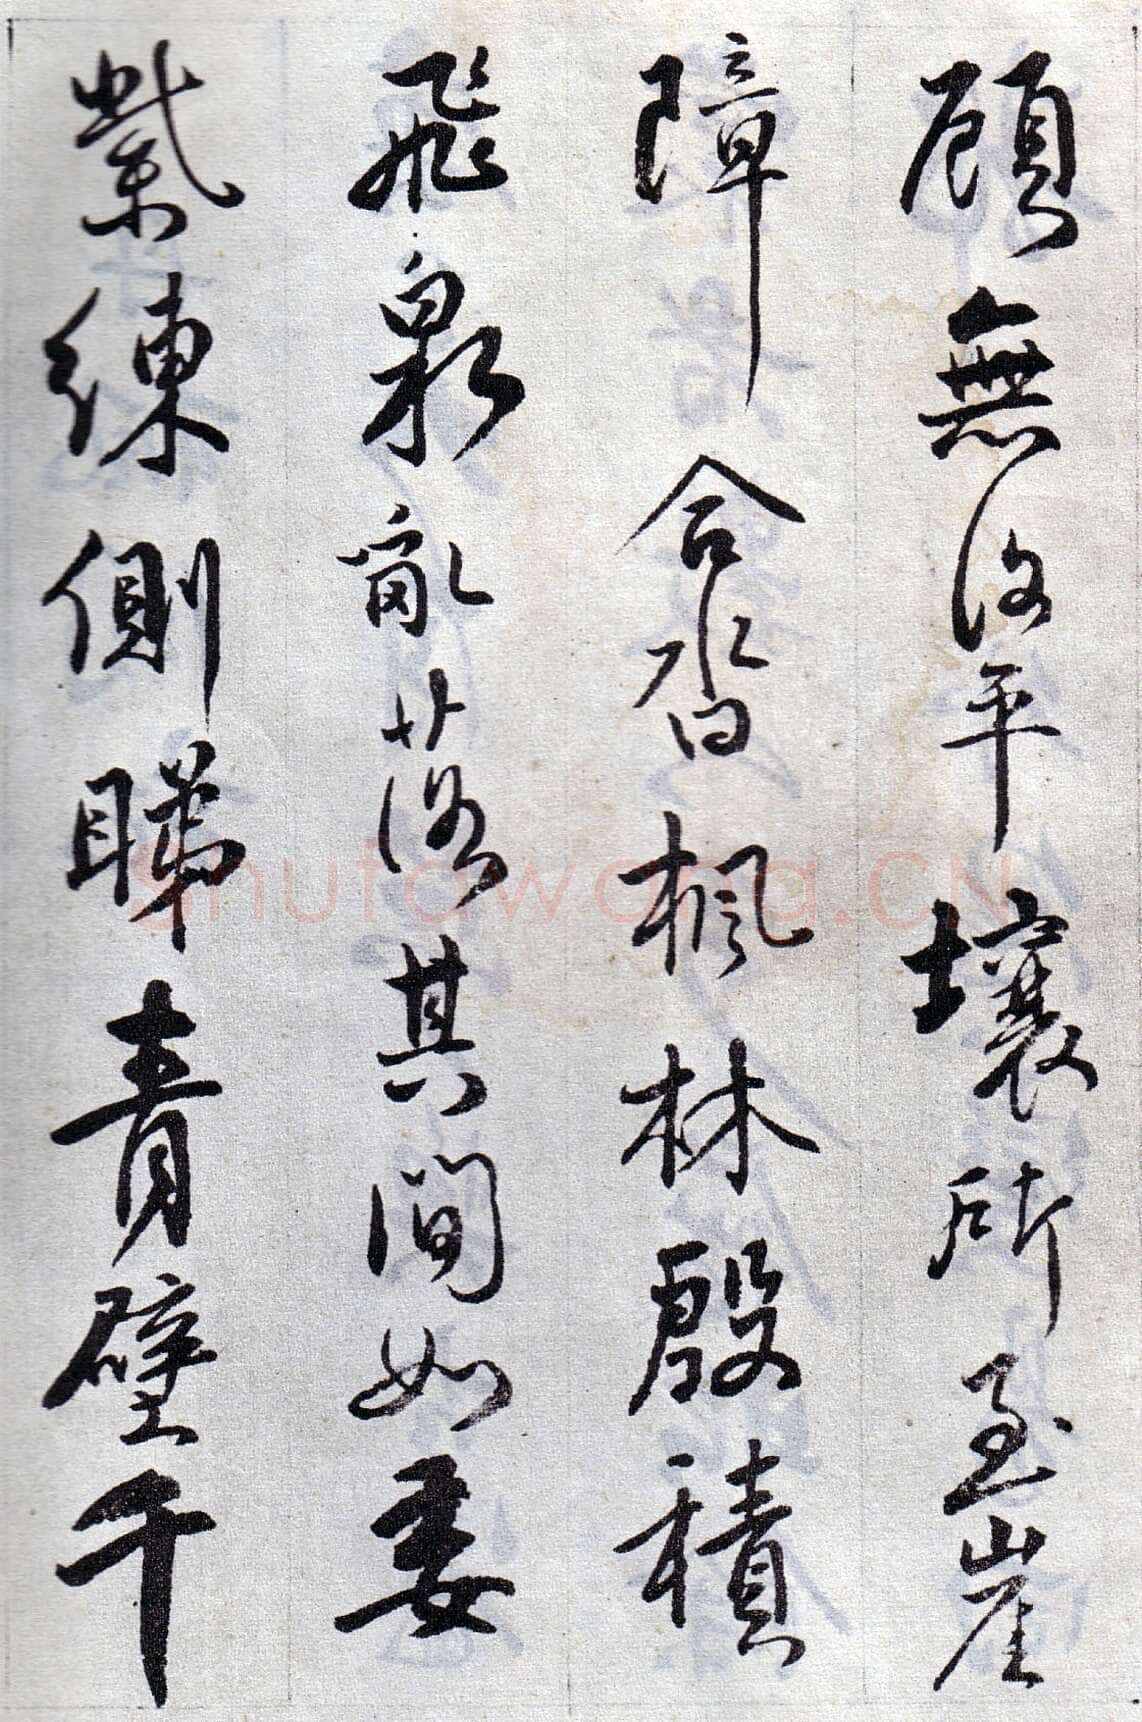 顾無復平壤所至崖
障合沓枫林殷積
飛泉亂落其間如委
紫練側睇青壁千
shufawang.CN